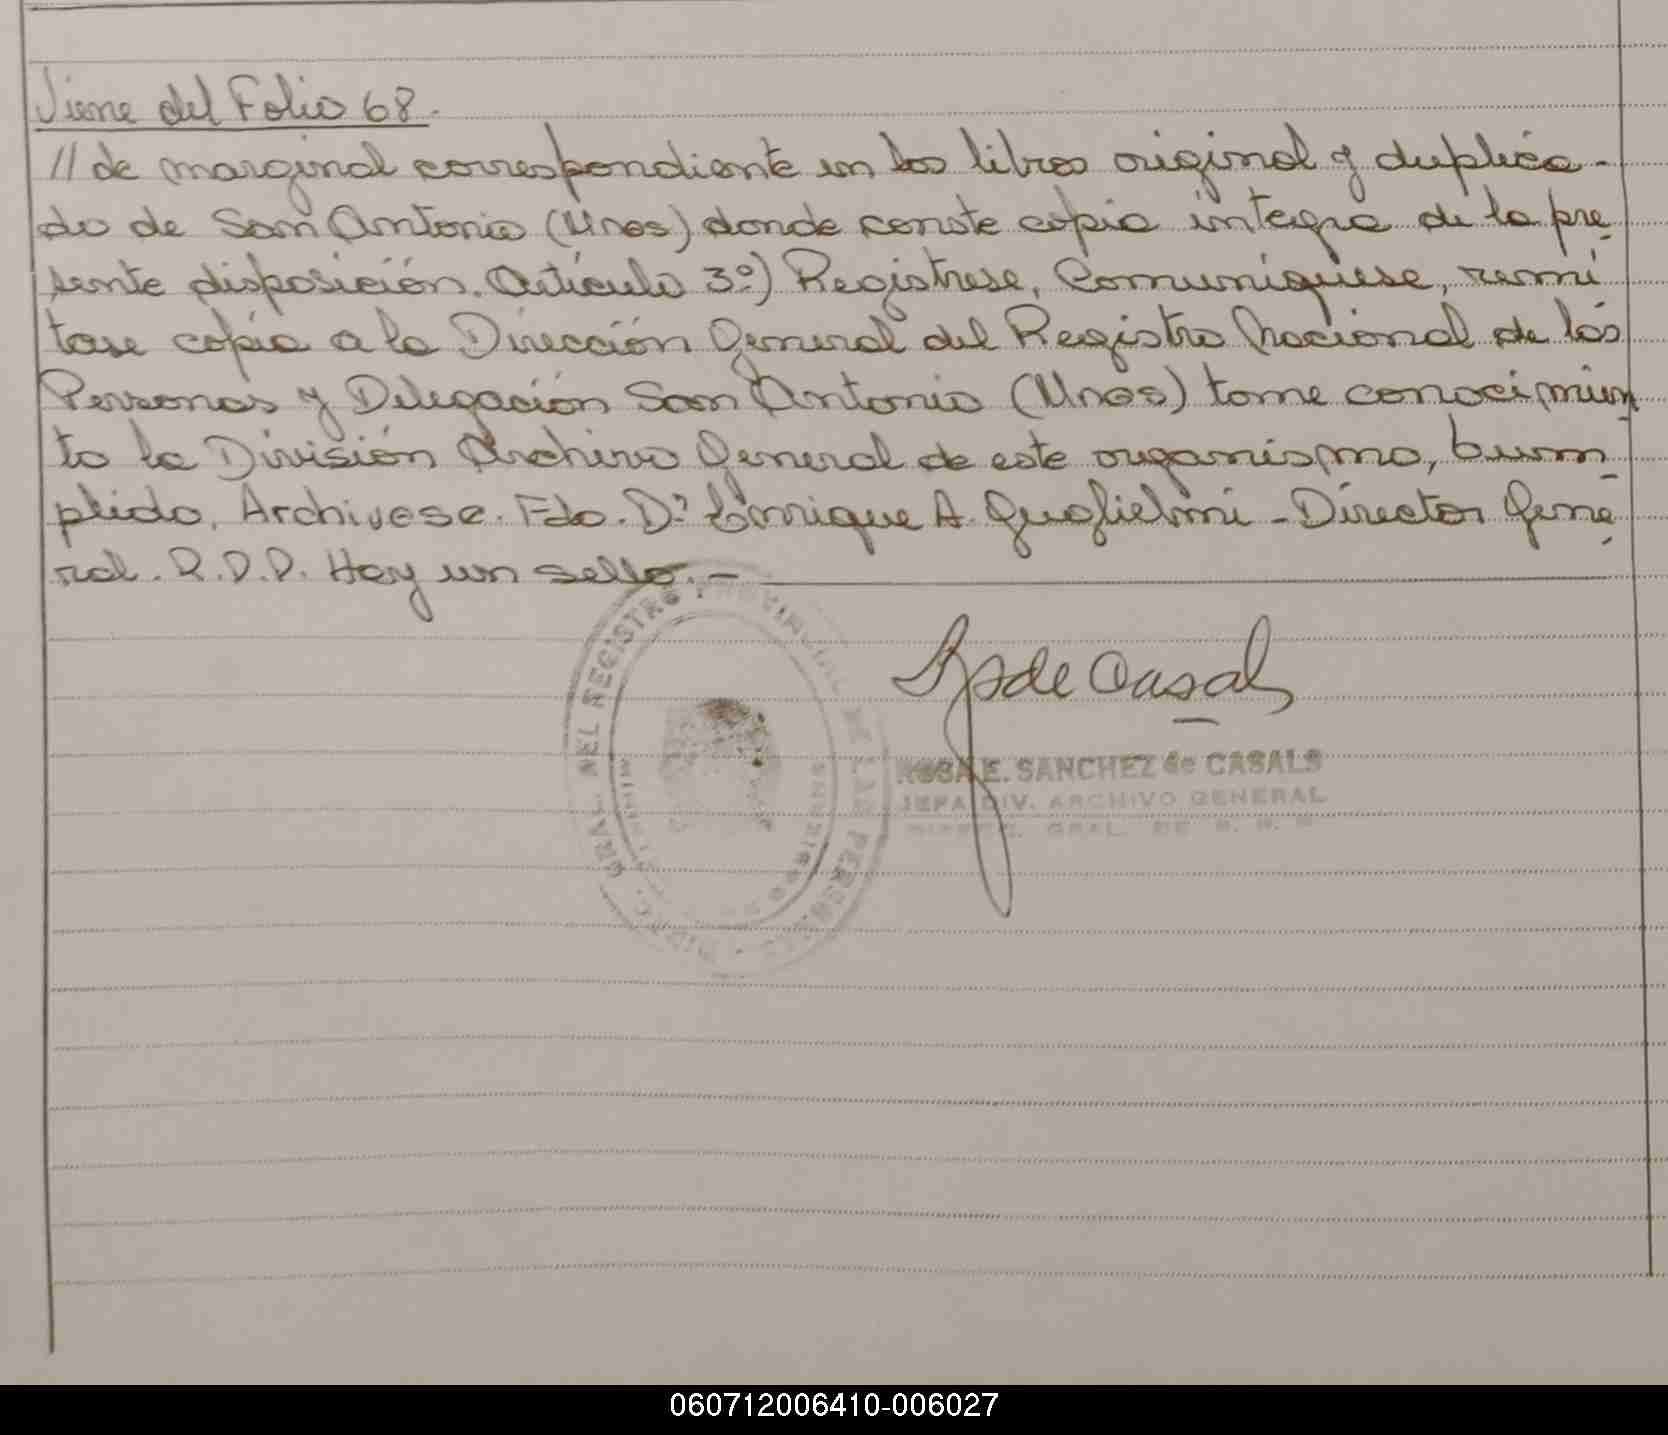 Viene del Folio 68.
// de marginal correspondiente en los libros original y duplica-
do de San Antonio (Mnes) donde conste copia integra de la pre
sente disposición. Artículo 3º) Registrese, Comuníquese, remi
tase copia a la Dirección General del Registro Nacional de las
Personas y Delegación San Antonio (Mnes) tome conocimien
to la División Archivo General de este organismo, Cum
plido, Archivese. Fdo. Dr. Enrique A. Guglielmi - Director Gene
ral. R.P.P. Hay un sello. -
de Casals
ROSA E. SANCHEZ de CASALS
JEFA DIV. ARCHIVO GENERAL
DIREC. GRAL. DE
DIREC. GRAL. DEL REGISTRO PROVINCIAL DE LAS PERSONAS
MISIONES
060712006410-006027